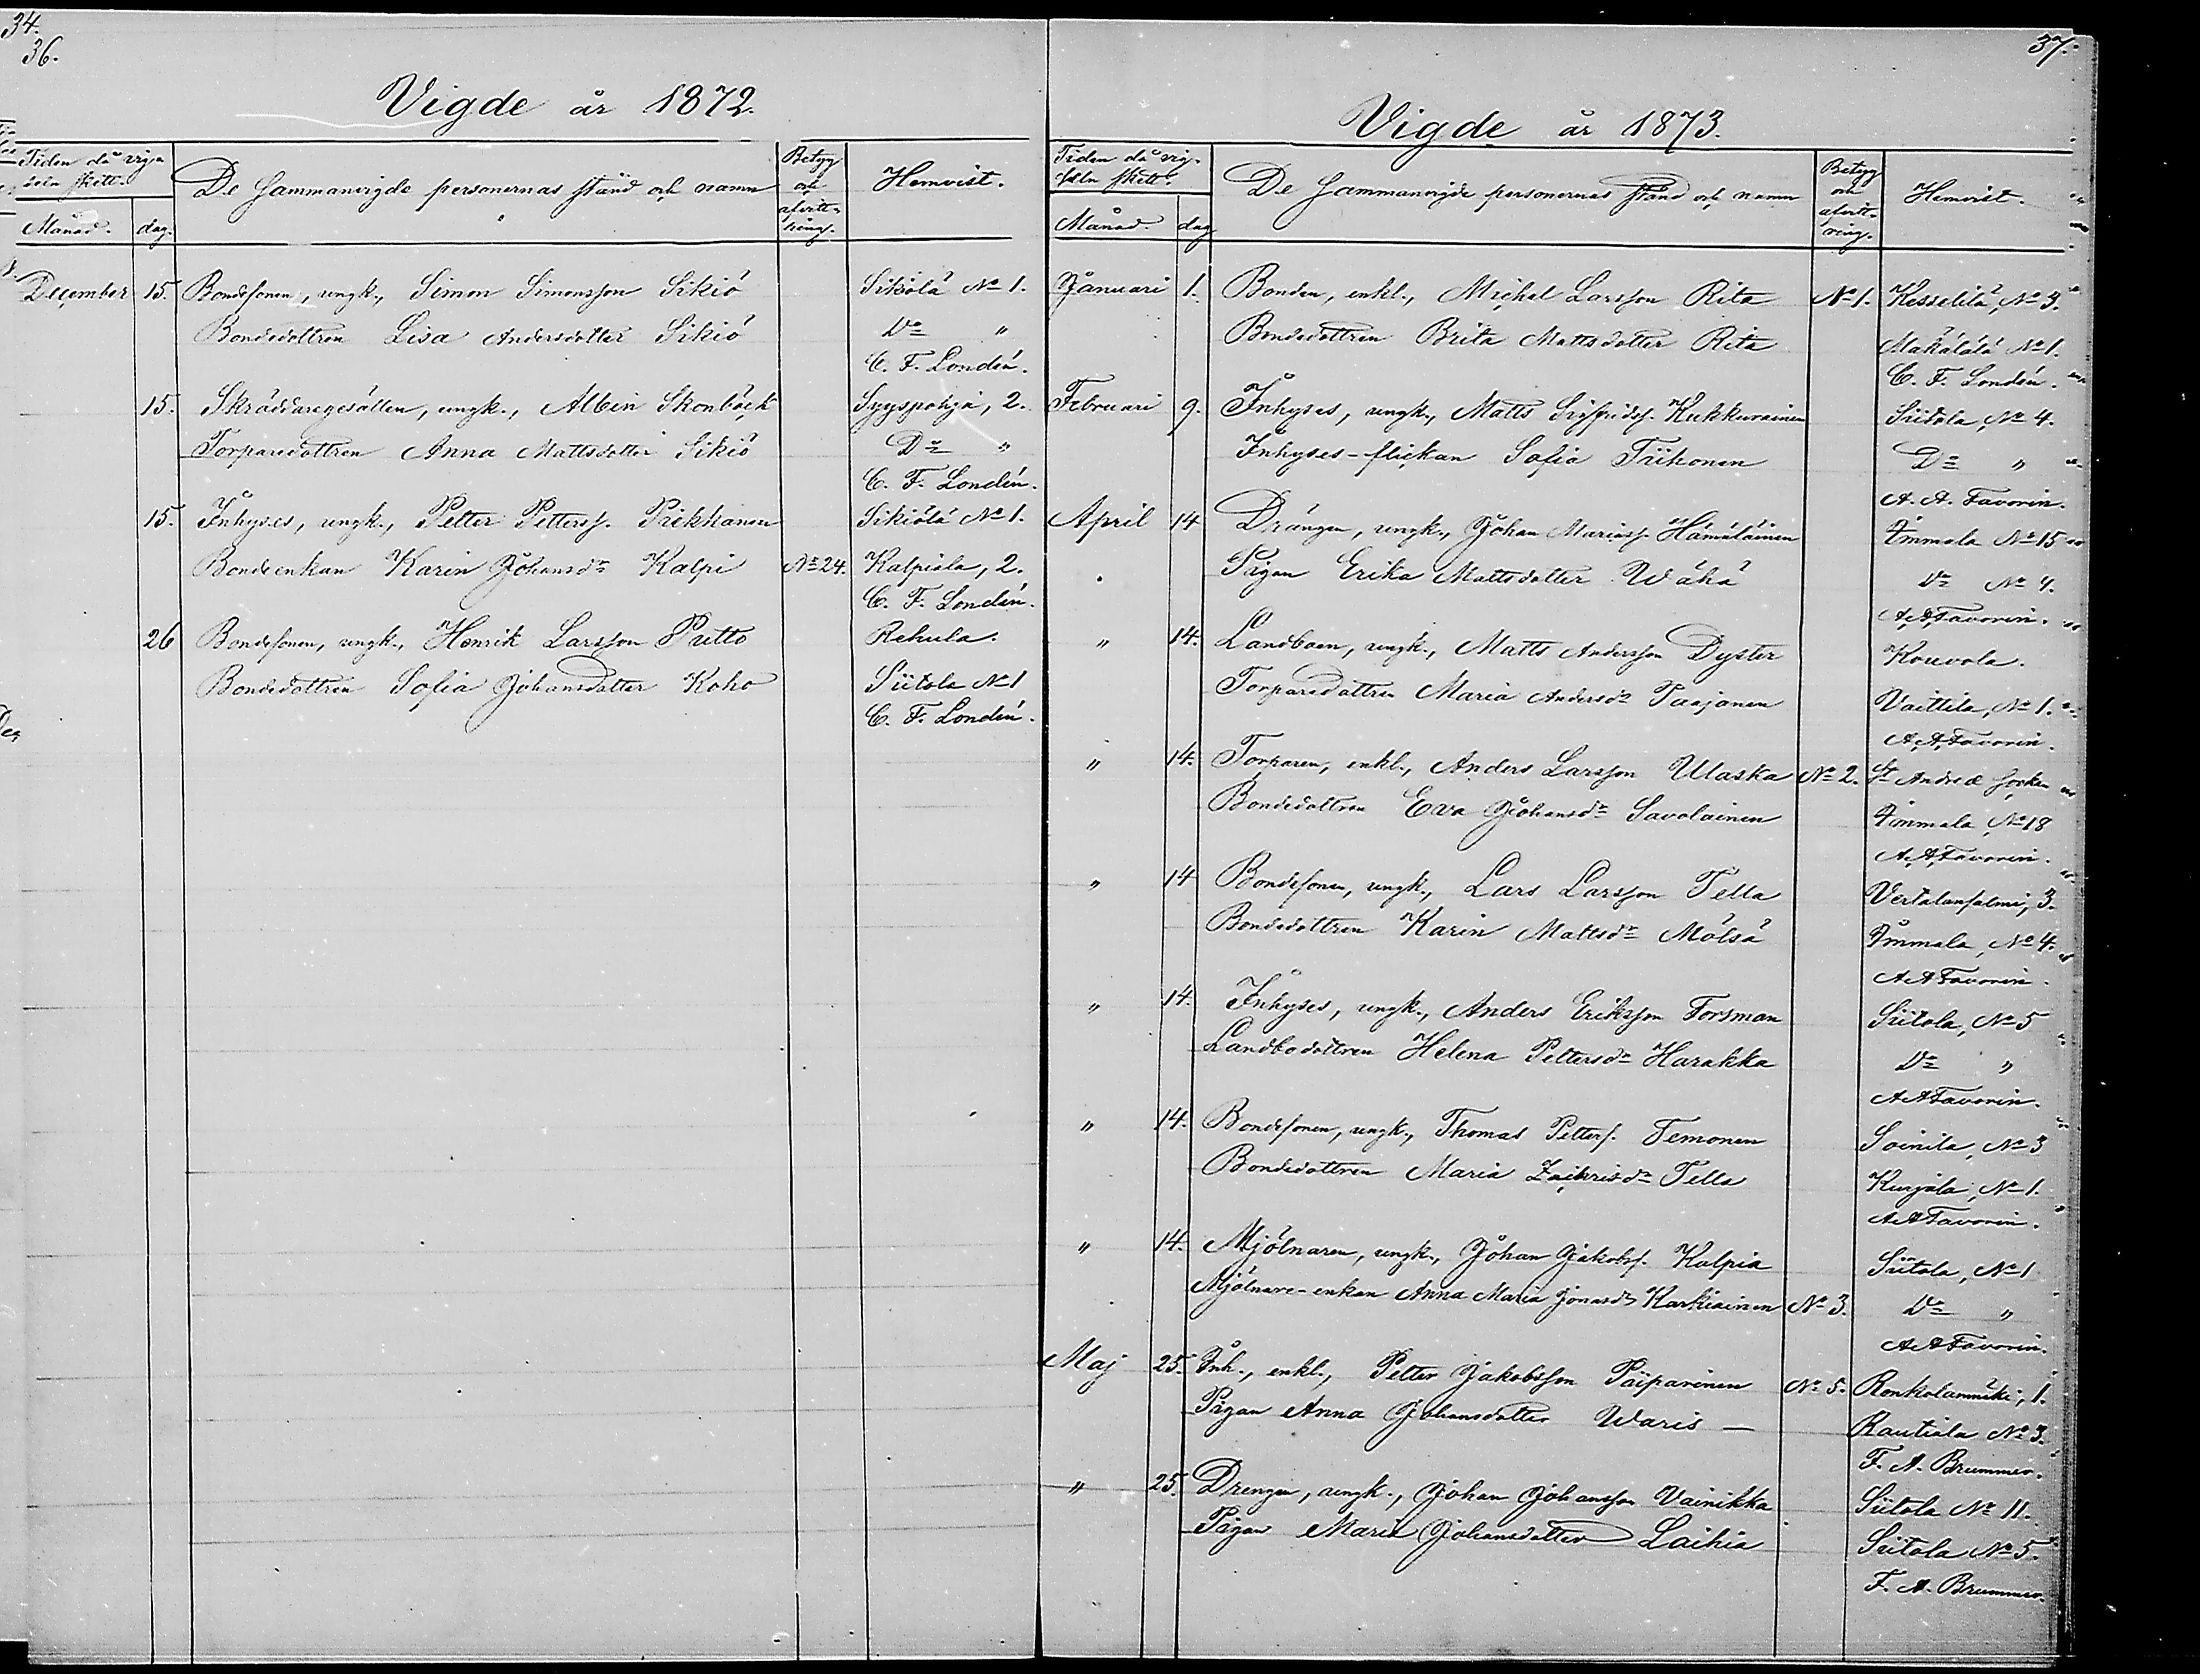 34.
36.
Vigde år 1872.
Tiden då vigseln skett.
De sammanvigde personernas stånd och namn
Betyg och afvittring.
Hemvist.
Månad. dag.
December 15. Bondesonen, ungk., Simon Simonsson Sikiö Sikiölä No 1.
Bondedottren Lisa Andersdotter Sikiö Do "
C. F. Londén.
15. Skräddaregesällen, ungk., Albin Skonbäck Syyspohja, 2.
Torparedottren Anna Mattsdotter Sikiö Do "
C. F. Londén.
15. Inhyses, ungk., Petter Petterss. Pirkkanen Sikiölä No 1.
Bondeenkan Karin Johansdr Kalpi No 24. Kalpiala, 2.
C. F. Londén.
26 Bondesonen, ungk., Henrik Larsson Putto Rehula.
Bondedottren Sofia Johansdotter Koho Siitola No 1
C. F. Londén.
37.
Vigde år 1873.
Tiden då vigseln skett.
De sammanvigde personernas stånd och namn
Betyg och afvittring.
Hemvist.
Månad. dag
Januari 1. Bonden, enkl., Michel Larsson Rita No 1. Kesselilä, No 3.
Bondedottren Brita Mattsdotter Rita Mäkälälä No 1.
C. F. Londén.
Februari 9. Inhyses, ungk., Matts Sigfridss. Kukkurainen Siitola, No 4.
Inhyses-flickan Sofia Tiihonen Do "
A. A. Favorin.
April 14 Drängen, ungk., Johan Mariass. Hämäläinen Immala No 15
Pigan Erika Mattsdotter Wähä Do No 4.
A. A. Favorin.
" 14. Landboen, ungk., Matts Andersson Dyster Kouvola.
Torparedottren Maria Andersdr Paajanen Vaittila, No 1.
A. A. Favorin.
" 14. Torparen, enkl., Anders Larsson Ulaska No 2. St Andreæ socken
Bondedottren Eva Johansdr Savolainen Immala, No 18
A. A. Favorin.
" 14 Bondesonen, ungk., Lars Larsson Tella Vertalansalmi, 3.
Bondedottren Karin Mattsdr Mölsä Immala, No 4.
A. A. Favorin.
" 14. Inhyses, ungk., Anders Eriksson Forsman Siitola, No 5
Landbodottren Helena Pettersdr Harakka Do "
A A Favorin.
" 14. Bondesonen, ungk., Thomas Petters. Temonen Soinila, No 3
Bondedottren Maria Zachrisdr Tella Kurjala, No 1.
A A Favorin.
" 14. Mjölnaren, ungk., Johan Jakobss. Kalpia Siitola, No 1
Mjölnare-enkan Anna Maria Jonasdr Karkiainen No 3. Do "
A A Favorin.
Maj 25. Inh., enkl., Petter Jakobsson Päiparinen No 5. Ronkolanmäki, 1.
Pigan Anna Johansdotter Waris — Rautiala No 3.
F. A. Brummer.
" 25. Drengen, ungk., Johan Johansson Vainikka Siitola No 11.
Pigan Maria Johansdotter Laihia Siitola No 5.
F. A. Brummer.